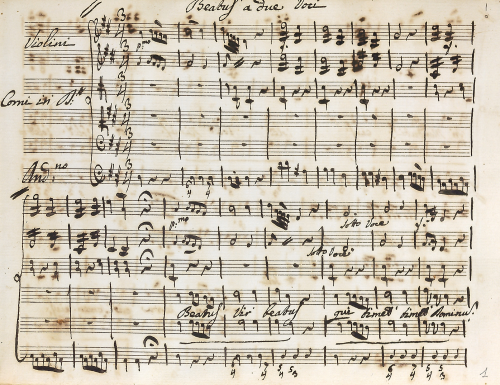 Beatus a due Voci
Violini
pmo
f.
f.
Corni in D#
And.no
p.mo
f.
sotto Voce
sotto Voce
Beatus Vir beatus qui timet timet Dominu
1